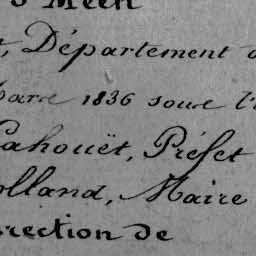 S Méen
, Département d
barre 1836 sous l'a
Cahouët, Préfet
olland, Maire
irection de